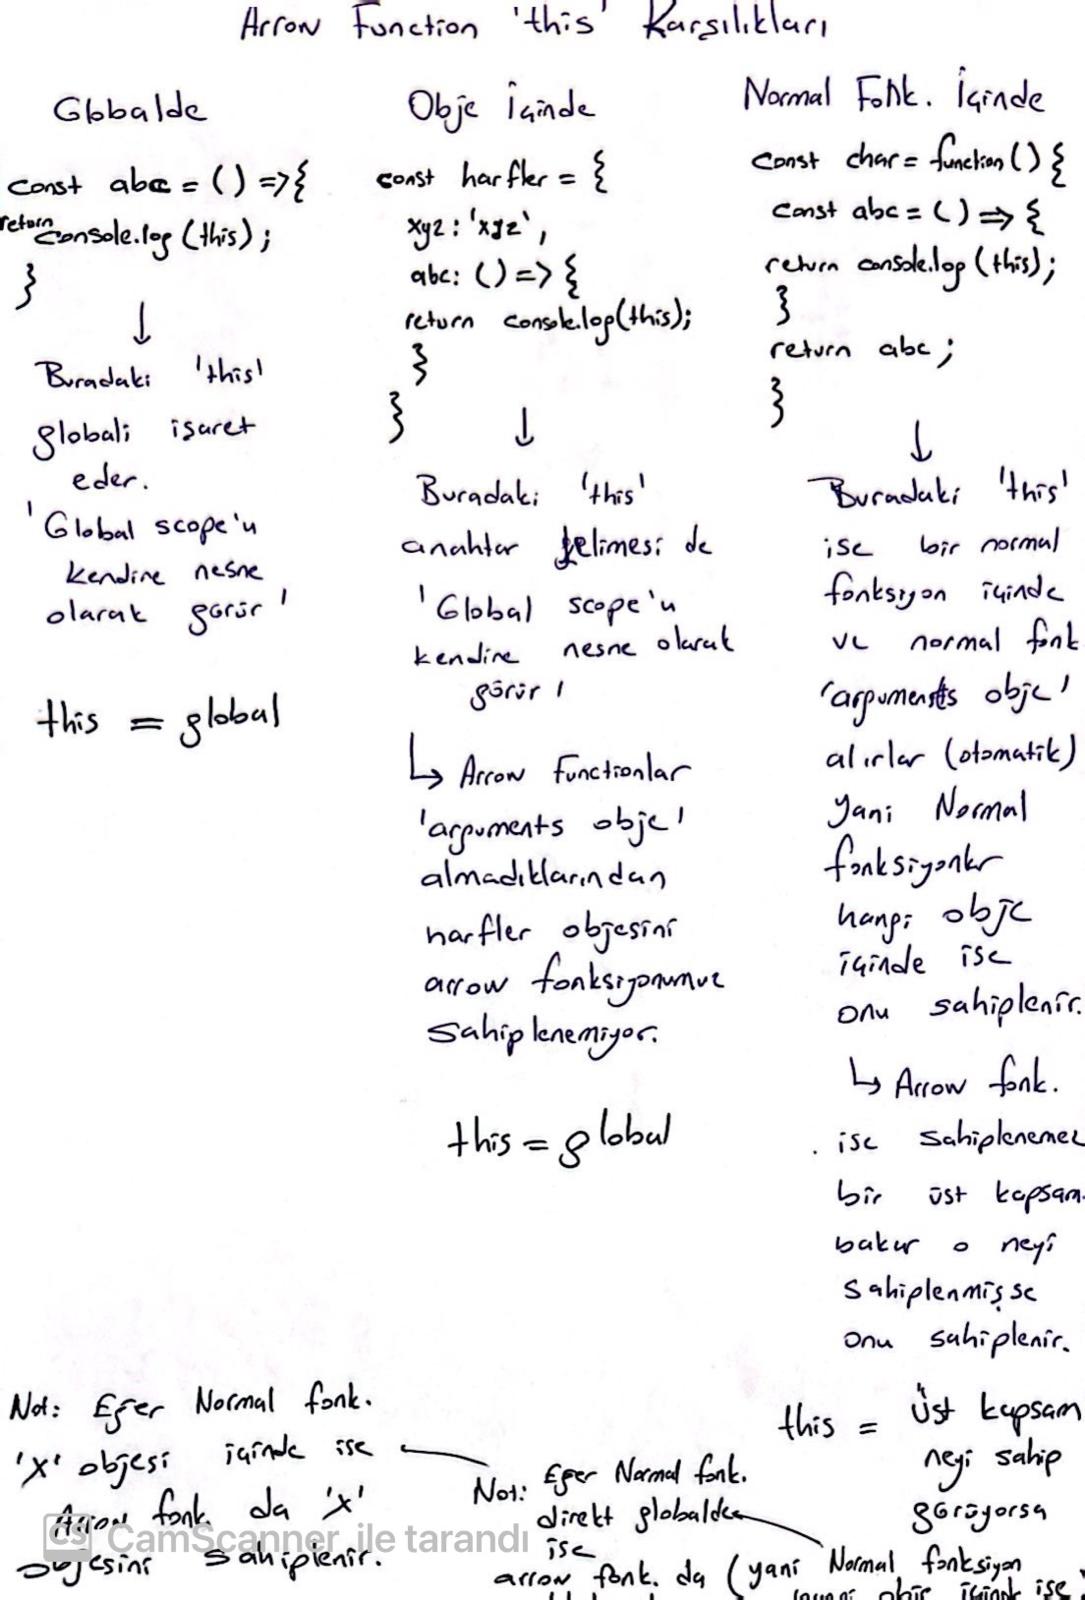 Arrow Function 'this' Karşılıkları
Globalde
const abc = () =>{
return console.log (this);
}
↓
Buradaki 'this'
globali işaret
eder.
'Global scope'u
kendine nesne
olarak görür'
this = global
Obje İçinde
const harfler = {
xyz: 'xyz',
abc: () => {
return console.log(this);
}
}
↓
Buradaki 'this'
anahtar kelimesi de
'Global scope'u
kendine nesne olarak
görür'
↳ Arrow Functionlar
'arguments obje'
almadıklarından
harfler objesini
arrow fonksiyonumuz
sahiplenemiyor.
this = global
Normal Fonk. İçinde
const char = function() {
const abc = () => {
return console.log (this);
}
return abc;
}
↓
Buradaki 'this'
ise bir normal
fonksiyon içinde
ve normal fonk
'arguments obje'
alırlar (otomatik)
yani Normal
fonksiyonlar
hangi obje
içinde ise
onu sahiplenir.
↳ Arrow fonk.
ise sahiplenemez
bir üst kapsam
bakar o neyi
sahiplenmişse
onu sahiplenir.
this = Üst kapsam
neyi sahip
görüyorsa
Not: Eğer Normal fonk.
'X' objesi içinde ise
Arrow fonk. da 'X'
objesini sahiplenir.
Not: Eğer Normal fonk.
direkt globalde
ise
arrow fonk. da (yani Normal fonksiyon
obje içinde ise
CS CamScanner ile tarandı